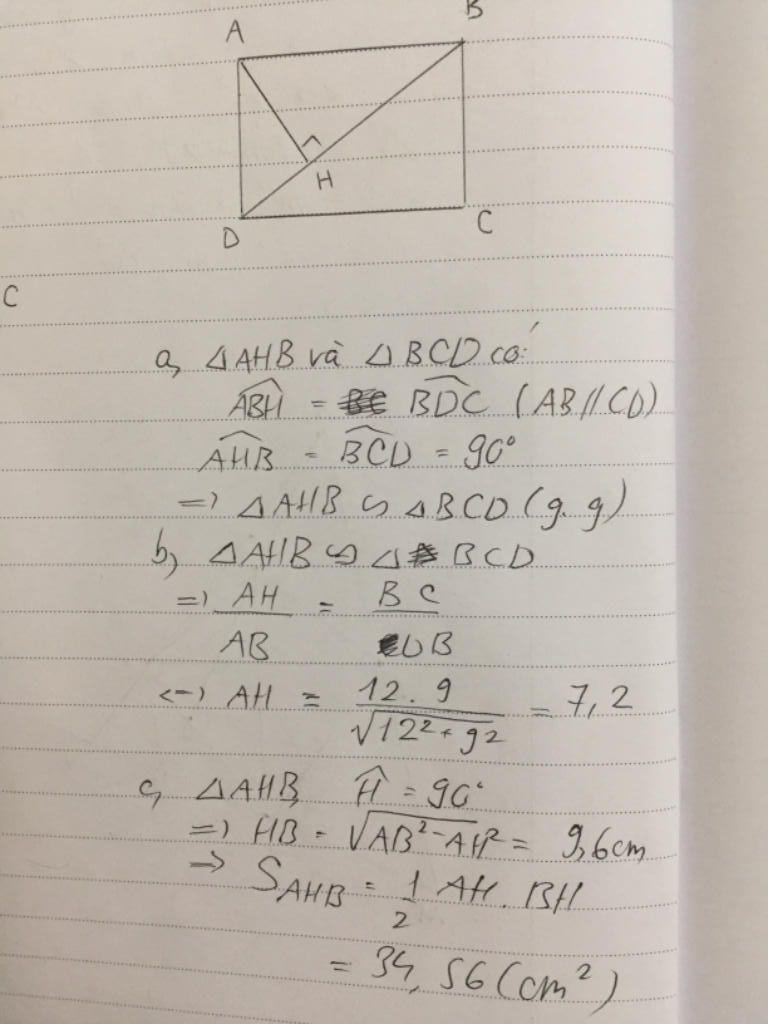 A
B
H
D
C
C
a, △AHB và △BCD có:
ABH^ = BDC^ (AB//CD)
AHB^ = BCD^ = 90°
=> △AHB ∽ △BCD (g.g)
b, △AHB ∽ △BCD
=> AH/AB = BC/DB
<=> AH = 12.9/√(12²+9²) = 7,2
c, △AHB, H^ = 90°
=> HB = √(AB²-AH²) = 9,6cm
=> S_AHB = 1/2 AH.BH
= 34,56(cm²)